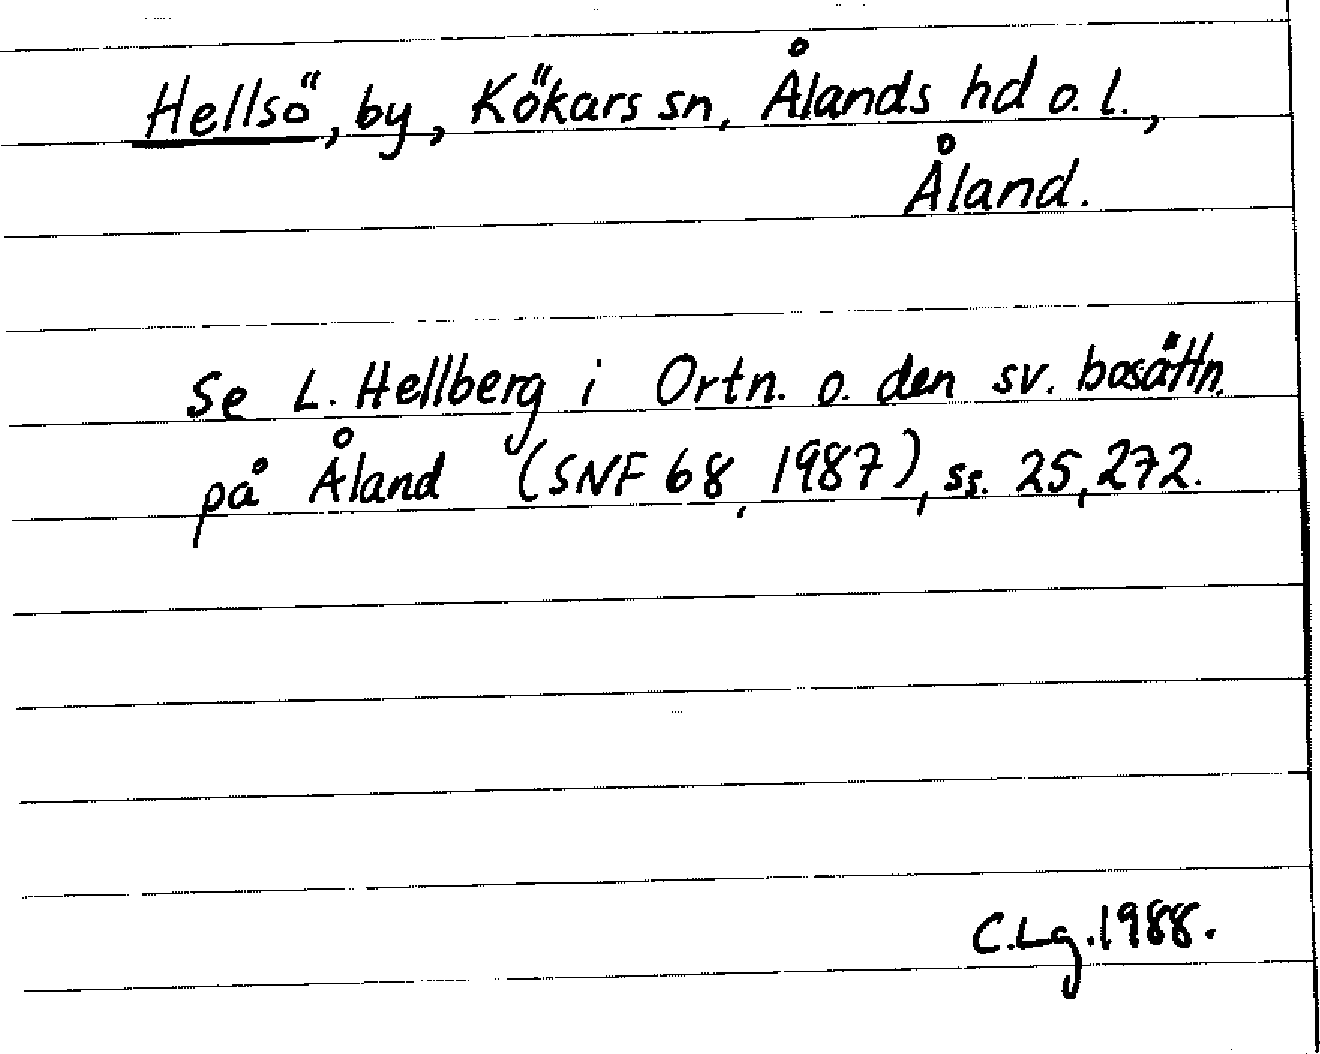 Hellsö, by, Kökars sn, Ålands hd o. l.,
Åland.
Se L. Hellberg i Ortn. o. den sv. bosättn.
på Åland (SNF 68, 1987), ss. 25, 272.
C.Lg.1988.